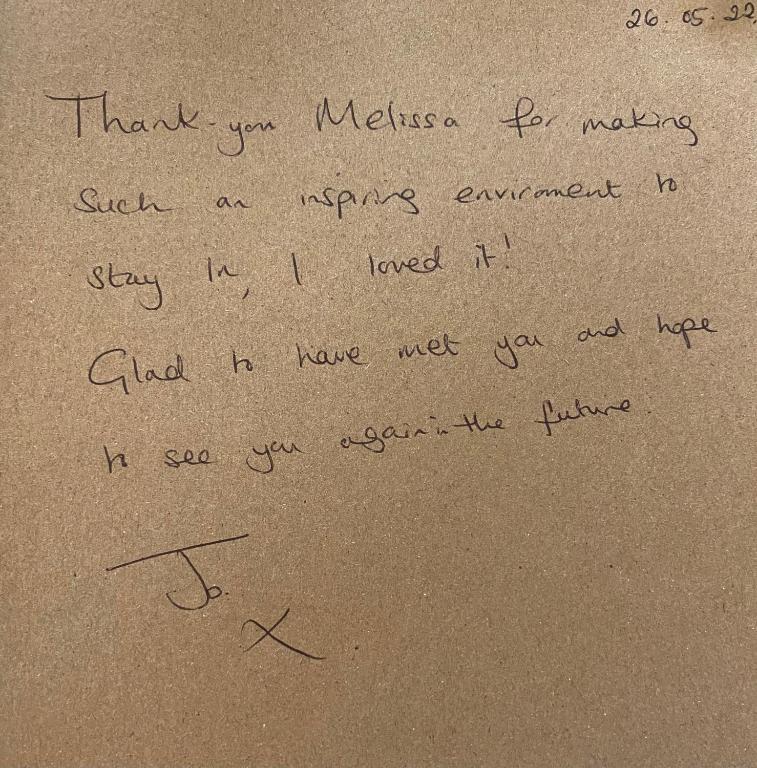 26.05.22
Thank-you Melissa for making
Such an inspiring enviroment to
stay In, I loved it!
Glad to have met you and hope
to see you again in the future.
Jo.
X